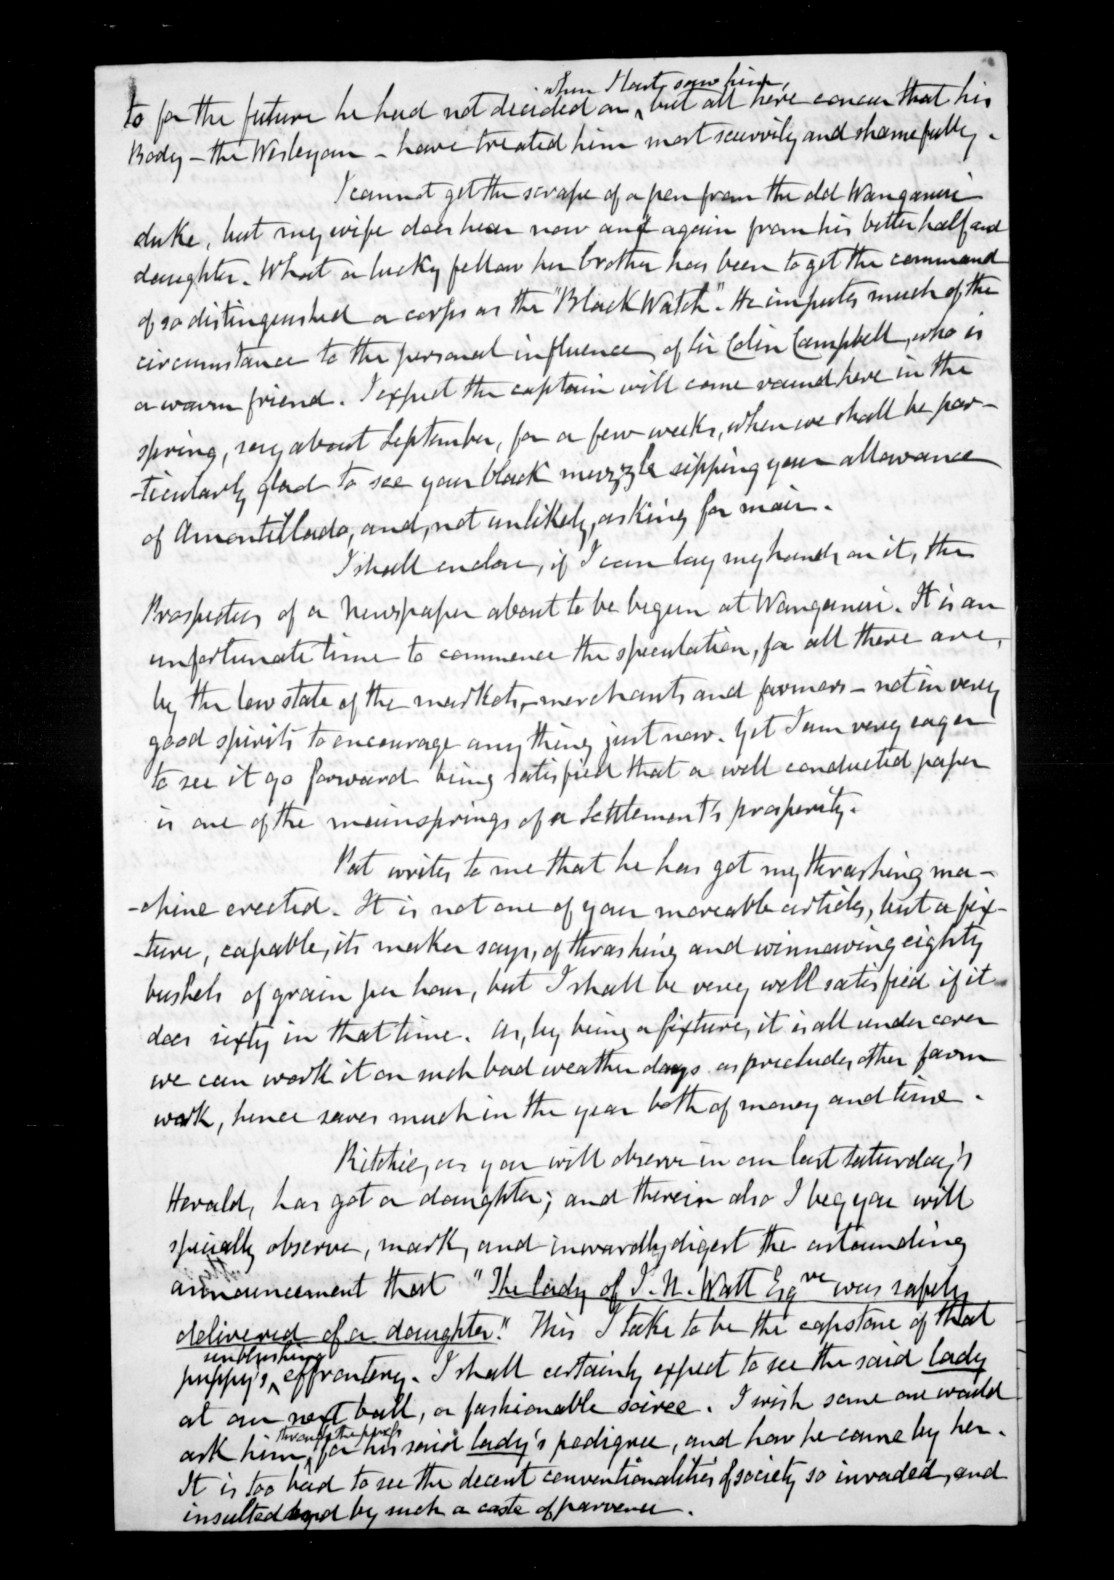 when I last saw him,
to for the future he had not decided on ‸ but all here concur that his
Body – the Wesleyan – have treated him most scurvily and shamefully.
I cannot get the scrape of a pen from the old Wanganui
duke, but my wife does hear now and again from his better half and
daughter. What a lucky fellow her brother has been to get the command
of so distinguished a corps as the "Black Watch". He imputes much of the
circumstance to the personal influence of Sir Colin Campbell, who is
a warm friend. I expect the captain will come round here in the
spring, say about September, for a few weeks, when we shall be par-
-ticularly glad to see your black muzzle sipping your allowance
of Amontillado, and, not unlikely, asking for mair.
I shall enclose, if I can lay my hands on it, the
Prospectus of a Newspaper about to be begun at Wanganui. It is an
unfortunate time to commence the speculation, for all there are,
by the low state of the markets, – merchants and farmers – not in very
good spirits to encourage any thing just now. Yet I am very eager
to see it go forward being satisfied that a well conducted paper
is one of the mainsprings of a Settlement's prosperity.
Pat writes to me that he has got my thrashing ma-
-chine erected. It is not one of your moveable articles, but a fix-
-ture, capable, its maker says, of thrashing and winnowing eighty
bushels of grain per hour, but I shall be very well satisfied if it
does sixty in that time. As, by being a fixture, it is all under cover
we can work it on such bad weather days as precludes other farm
work, hence saves much in the year both of money and time.
Ritchie, as you will observe in our last Saturday's
Herald, has got a daughter; and therein also I beg you will
specially observe, mark, and inwardly digest the astounding
announcement that "The lady of I. N. Watt Esqre was safely
delivered of a daughter." This I take to be the capstone of that
unblushing
puppy's ‸ effrontery. I shall certainly expect to see the said lady
at our next ball, or fashionable soiree. I wish some one would
through the press
ask him ‸ for his said lady's pedigree, and how he came by her.
It is too bad to see the decent conventionalities of society so invaded, and
insulted by such a caste of parvenu.